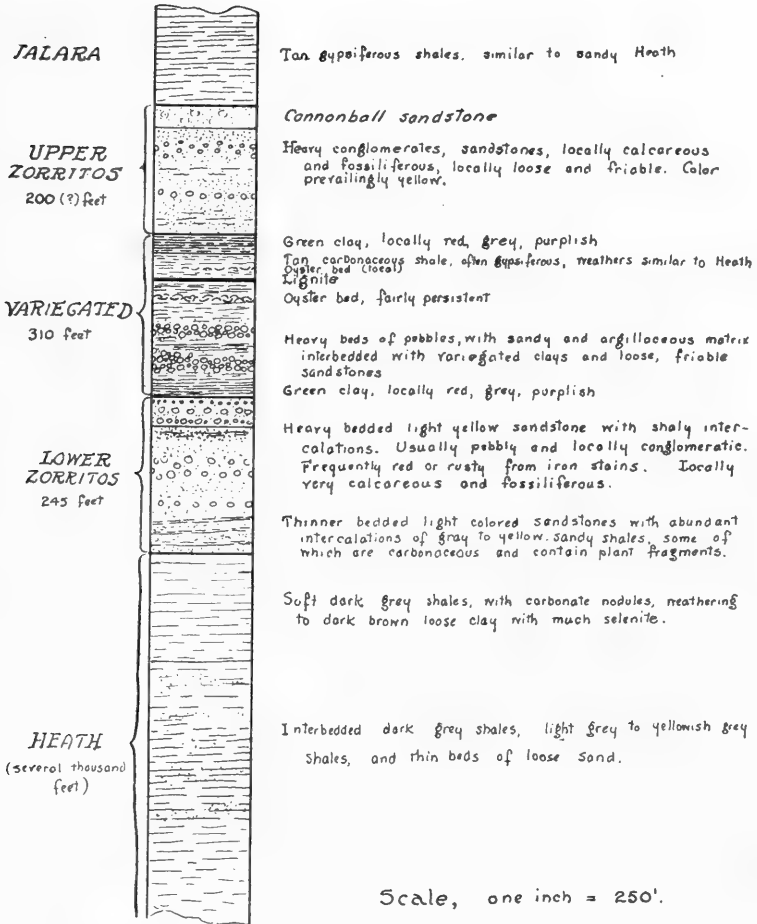 JALARA
Tan gypsiferous shales, similar to sandy Heath
Cannonball sandstone
UPPER
ZORRITOS
200 (?) feet
Heavy conglomerates, sandstones, locally calcareous
and fossiliferous, locally loose and friable. Color
prevailingly yellow.
VARIEGATED
310 feet
Green clay, locally red, grey, purplish
Tan carbonaceous shale, often gypsiferous, weathers similar to Heath
Oyster bed (local)
Lignite
Oyster bed, fairly persistent
Heavy beds of pebbles, with sandy and argillaceous matrix
interbedded with variegated clays and loose, friable
sandstones
Green clay, locally red, grey, purplish
LOWER
ZORRITOS
245 feet
Heavy bedded light yellow sandstone with shaly inter-
calations. Usually pebbly and locally conglomeratic.
Frequently red or rusty from iron stains. Locally
very calcareous and fossiliferous.
Thinner bedded light colored sandstones with abundant
intercalations of gray to yellow sandy shales, some of
which are carbonaceous and contain plant fragments.
HEATH
(several thousand
feet)
Soft dark grey shales, with carbonate nodules, weathering
to dark brown loose clay with much selenite.
Interbedded dark grey shales, light grey to yellowish grey
shales, and thin beds of loose sand.
Scale, one inch = 250'.